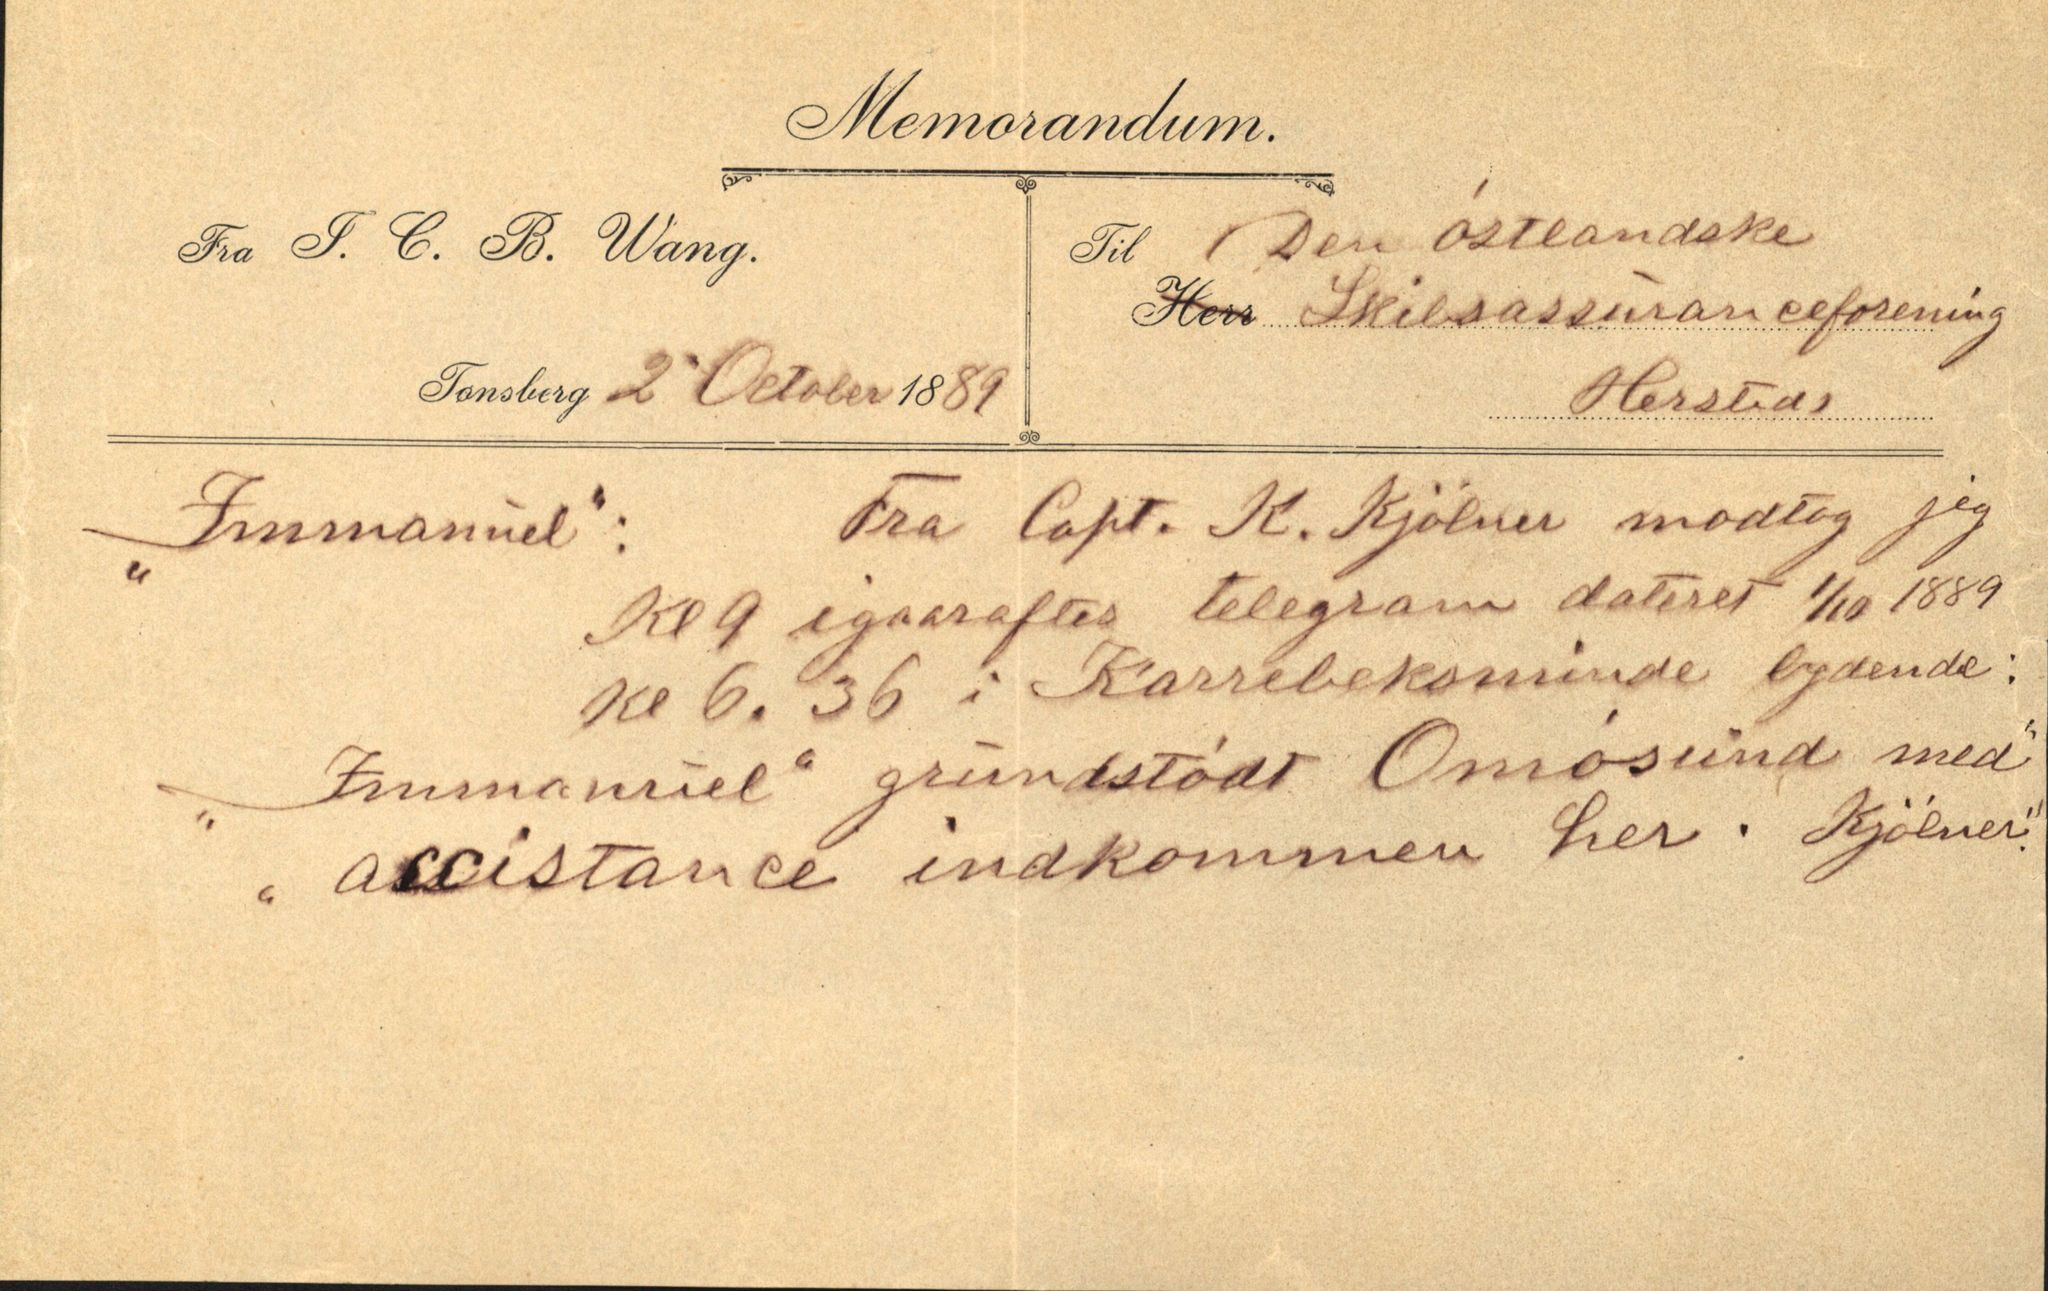 Memorandum.
Fra J. C. B. Wang.
Tønsberg 2 October 1889
Til Den Östlandske
Herr Skibsassüranceforening
Hersteds
„Immanüel“: Fra Capt. K. Kjölner modtog jeg
Kl 9 igaaraftes telegram dateret 1/10 1889
Kl 6.36 i Karrebeksminde lydende:
„Immanüel“ gründstödt Omösünd med“
„ assistance indkommen her. Kjölner.“